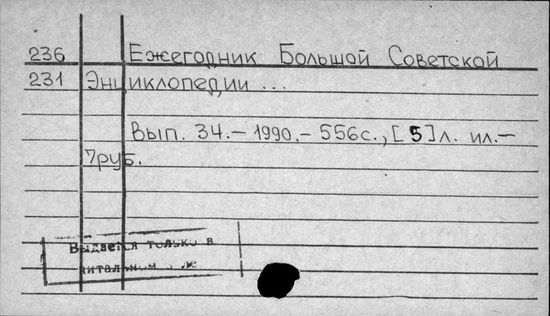 236 Ежегодник Большой Советской
231 Энциклопедии ...
Вып. 34.– 1990.– 556с., [5]л. ил.–
7руб.
Выдается только в